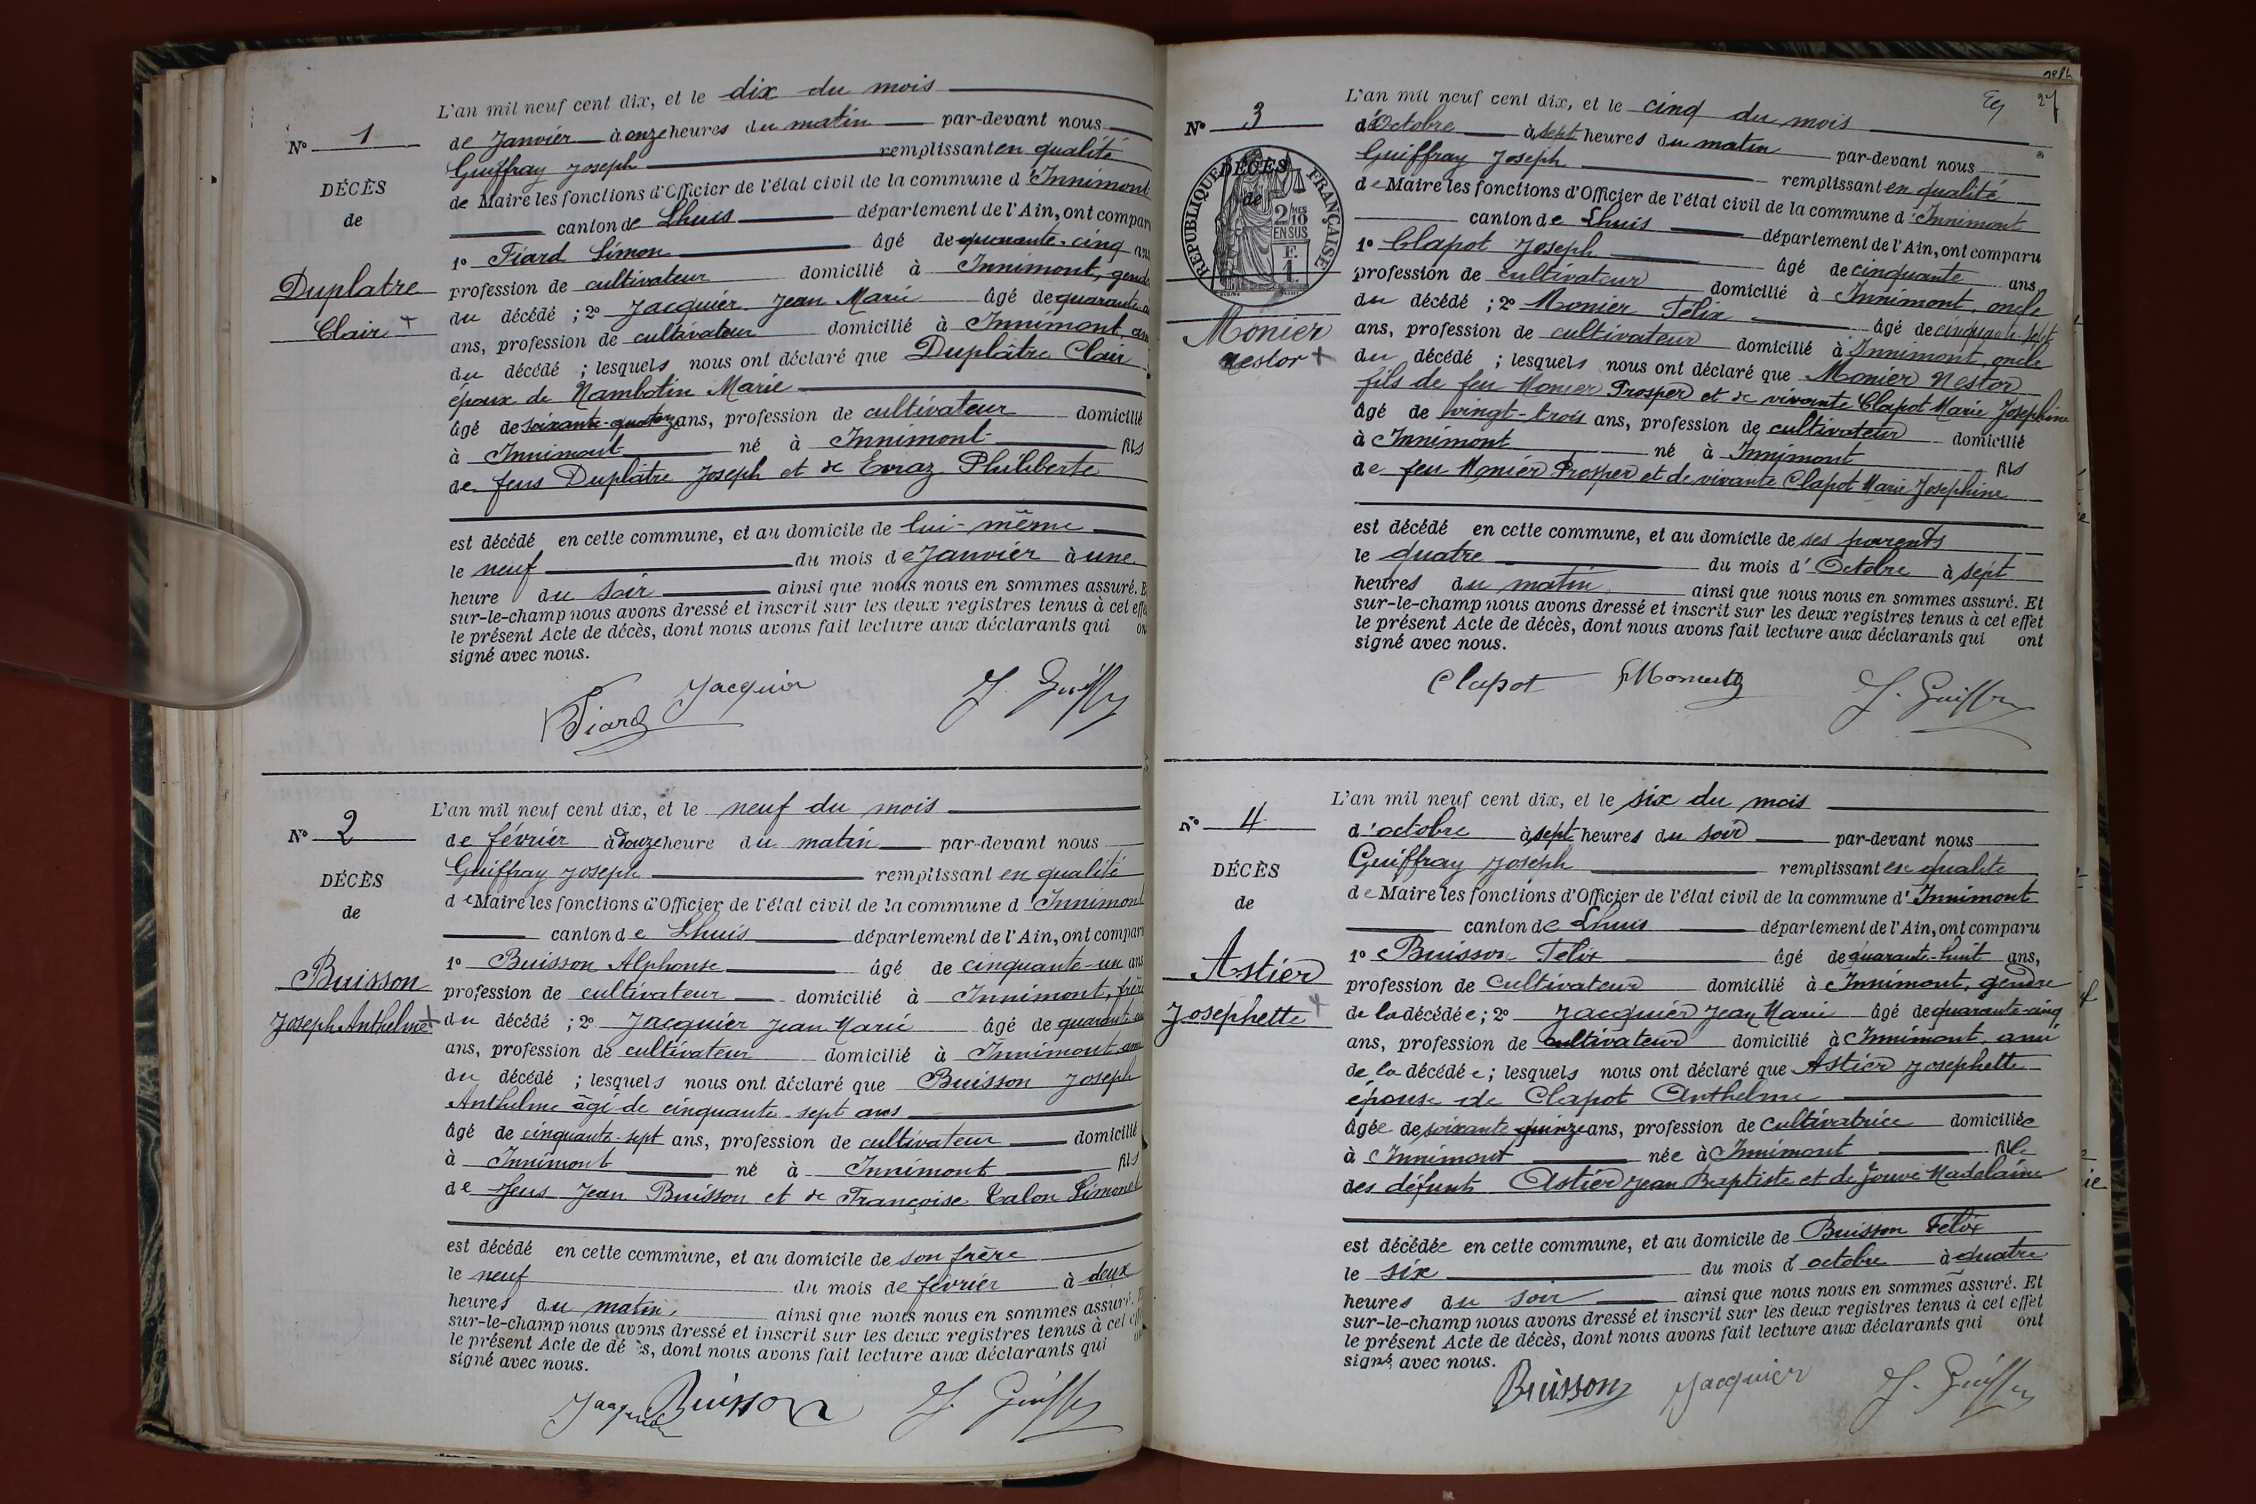 L'an mil neuf cent dix, et le dix du mois
N° 1
de Janvier à onze heures du matin par-devant nous
Guiffray Joseph remplissant en qualité
DÉCÈS
de Maire les fonctions d'Officier de l'état civil de la commune d'Innimont
de
canton de Lhuis département de l'Ain, ont compar
1° Fiard Simon âgé de quarante-cinq ans
Duplatre
profession de cultivateur domicilié à Innimont, gendre
Clair +
du décédé ; 2° Jacquier Jean Marie âgé de quarante
ans, profession de cultivateur domicilié à Innimont, ami
du décédé ; lesquels nous ont déclaré que Duplâtre Clair
époux de Nambotin Marie
âgé de soixante-quatorze ans, profession de cultivateur domicilié
à Innimont né à Innimont fils
de feus Duplâtre Joseph et de Evraz Philiberte
est décédé en cette commune, et au domicile de lui-même
le neuf du mois de Janvier à une
heure du soir ainsi que nous nous en sommes assuré. E
sur-le-champ nous avons dressé et inscrit sur les deux registres tenus à cet effe
le présent Acte de décès, dont nous avons fait lecture aux déclarants qui on
signé avec nous.
Fiard Jacquier J. Guiffray
L'an mil neuf cent dix, et le neuf du mois
N° 2
de février à douze heure du matin par-devant nous
Guiffray Joseph remplissant en qualité
DÉCÈS
de Maire les fonctions d'Officier de l'état civil de la commune d Innimont
de
canton de Lhuis département de l'Ain, ont compar
1° Buisson Alphonse âgé de cinquante-un ans
Buisson
profession de cultivateur domicilié à Innimont, frère
Joseph Anthelme +
du décédé ; 2° Jacquier Jean Marie âgé de quarante
ans, profession de cultivateur domicilié à Innimont, ami
du décédé ; lesquels nous ont déclaré que Buisson Joseph
Anthelme âgé de cinquante-sept ans
âgé de cinquante-sept ans, profession de cultivateur domicilié
à Innimont né à Innimont fils
de feus Jean Buisson et de Françoise Talon Simonet
est décédé en cette commune, et au domicile de son frère
le neuf du mois de février à deux
heures du matin, ainsi que nous nous en sommes assuré.
sur-le-champ nous avons dressé et inscrit sur les deux registres tenus à cet eff
le présent Acte de dé ès, dont nous avons fait lecture aux déclarants qui
signé avec nous.
Jacquier Buisson J. Guiffray
27
L'an mil neuf cent dix, et le cinq du mois
N° 3
d'Octobre à sept heures du matin par-devant nous
Guiffray Joseph remplissant en qualité
DÉCÈS
de
RÉPUBLIQUE FRANÇAISE
2/10 MES EN SUS
F. 1.
de Maire les fonctions d'Officier de l'état civil de la commune d'Innimont
canton de Lhuis département de l'Ain, ont comparu
1° Clapot Joseph âgé de cinquante ans,
profession de cultivateur domicilié à Innimont, oncle
du décédé ; 2° Monier Félix âgé de cinquante-sept
Monier
Nestor +
ans, profession de cultivateur domicilié à Innimont, oncle
du décédé ; lesquels nous ont déclaré que Monier Nestor
fils de feu Monier Prosper et de vivante Clapot Marie Josephine
âgé de vingt-trois ans, profession de cultivateur domicilié
à Innimont né à Innimont fils
de feu Monier Prosper et de vivante Clapot Marie Josephine
est décédé en cette commune, et au domicile de ses parents
le quatre du mois d'Octobre à sept
heures du matin ainsi que nous nous en sommes assuré. Et
sur-le-champ nous avons dressé et inscrit sur les deux registres tenus à cet effet
le présent Acte de décès, dont nous avons fait lecture aux déclarants qui ont
signé avec nous.
Clapot J. Guiffray
L'an mil neuf cent dix, et le six du mois
N° 4
d'octobre à sept heures du soir par-devant nous
Guiffray Joseph remplissant en qualité
DÉCÈS
de Maire les fonctions d'Officier de l'état civil de la commune d'Innimont
de
canton de Lhuis département de l'Ain, ont comparu
1° Buisson Félix âgé de quarante-huit ans,
Astier
profession de cultivateur domicilié à Innimont, gendre
Josephette +
de la décédée ; 2° Jacquier Jean Marie âgé de quarante-cinq
ans, profession de cultivateur domicilié à Innimont, ami
de la décédée ; lesquels nous ont déclaré que Astier Josephette
épouse de Clapot Anthelme
âgée de soixante quinze ans, profession de cultivatrice domiciliée
à Innimont née à Innimont fille
des défunts Astier Jean Baptiste et de Jouve Madelaine
est décédée en cette commune, et au domicile de Buisson Félix
le six du mois d octobre à quatre
heures du soir ainsi que nous nous en sommes assuré. Et
sur-le-champ nous avons dressé et inscrit sur les deux registres tenus à cet effet
le présent Acte de décès, dont nous avons fait lecture aux déclarants qui ont
signé avec nous.
Buisson Jacquier J. Guiffray